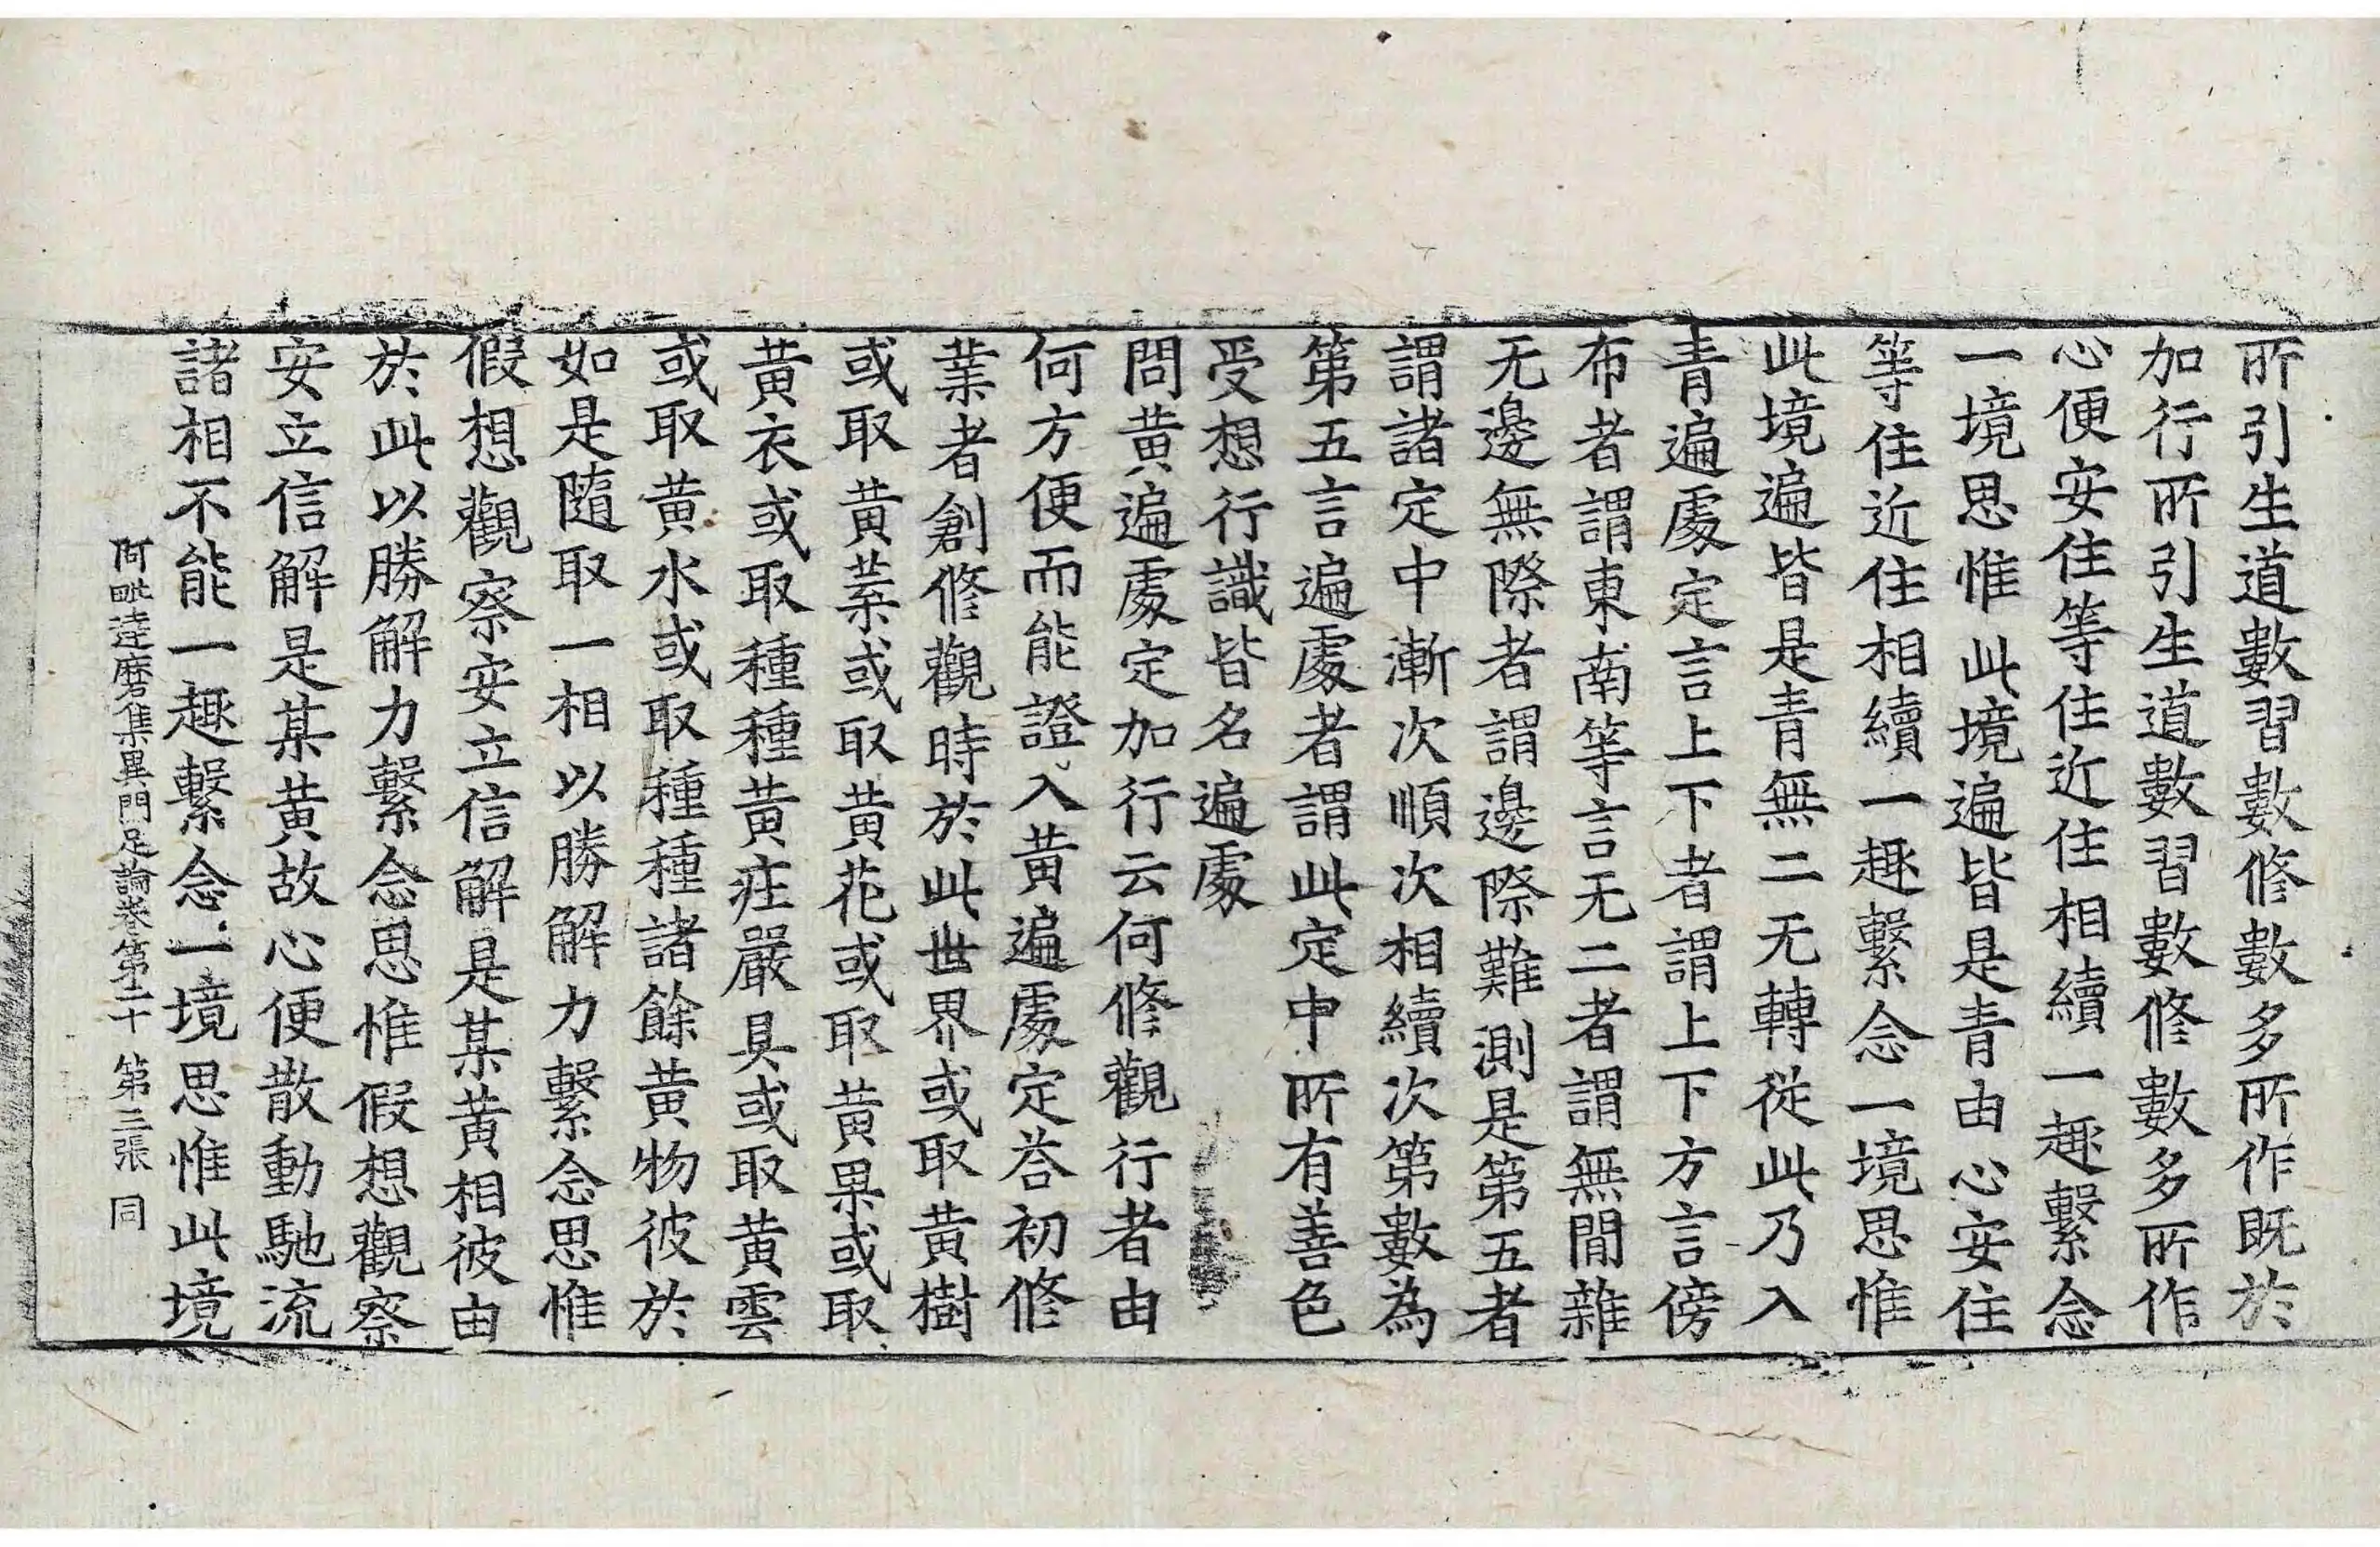 所引生道數習數修數多所作既於
加行所引生道數習數修數多所作
心便安住等住近住相續一趣繫念
一境思惟此境遍皆是青由心安住
等住近住相續一趣繫念一境思惟
此境遍皆是青無二无轉從此乃入
青遍處定言上下者謂上下方言傍
布者謂東南等言无二者謂無間雜
无邊無際者謂邊際難測是第五者
謂諸定中漸次順次相續次第數為
第五言遍處者謂此定中所有善色
受想行識皆名遍處
問黃遍處定加行云何修觀行者由
何方便而能證入黃遍處定荅初修
業者創修觀時於此世界或取黃樹
或取黃葉或取黃花或取黃果或取
黃衣或取種種黃庄嚴具或取黃雲
或取黃水或取種種諸餘黃物彼於
如是隨取一相以勝解力繫念思惟
假想觀察安立信解是某黃相彼由
於此以勝解力繫念思惟假想觀察
安立信解是某黃故心便散動馳流
諸相不能一趣繫念一境思惟此境
阿毗達磨集異門足論卷第二十 第三張 同